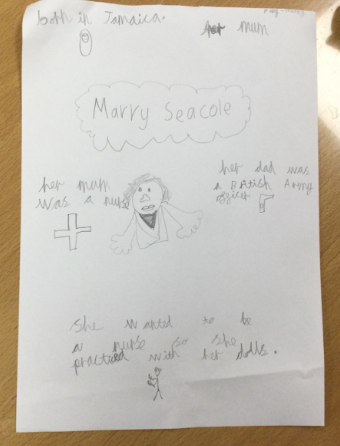 both in Jamaica.
her mum
Marry Seacole
her mum
was a nurse
her dad was
a British Army
officer
she wanted to be
a nurse so she
practied with her dolls.